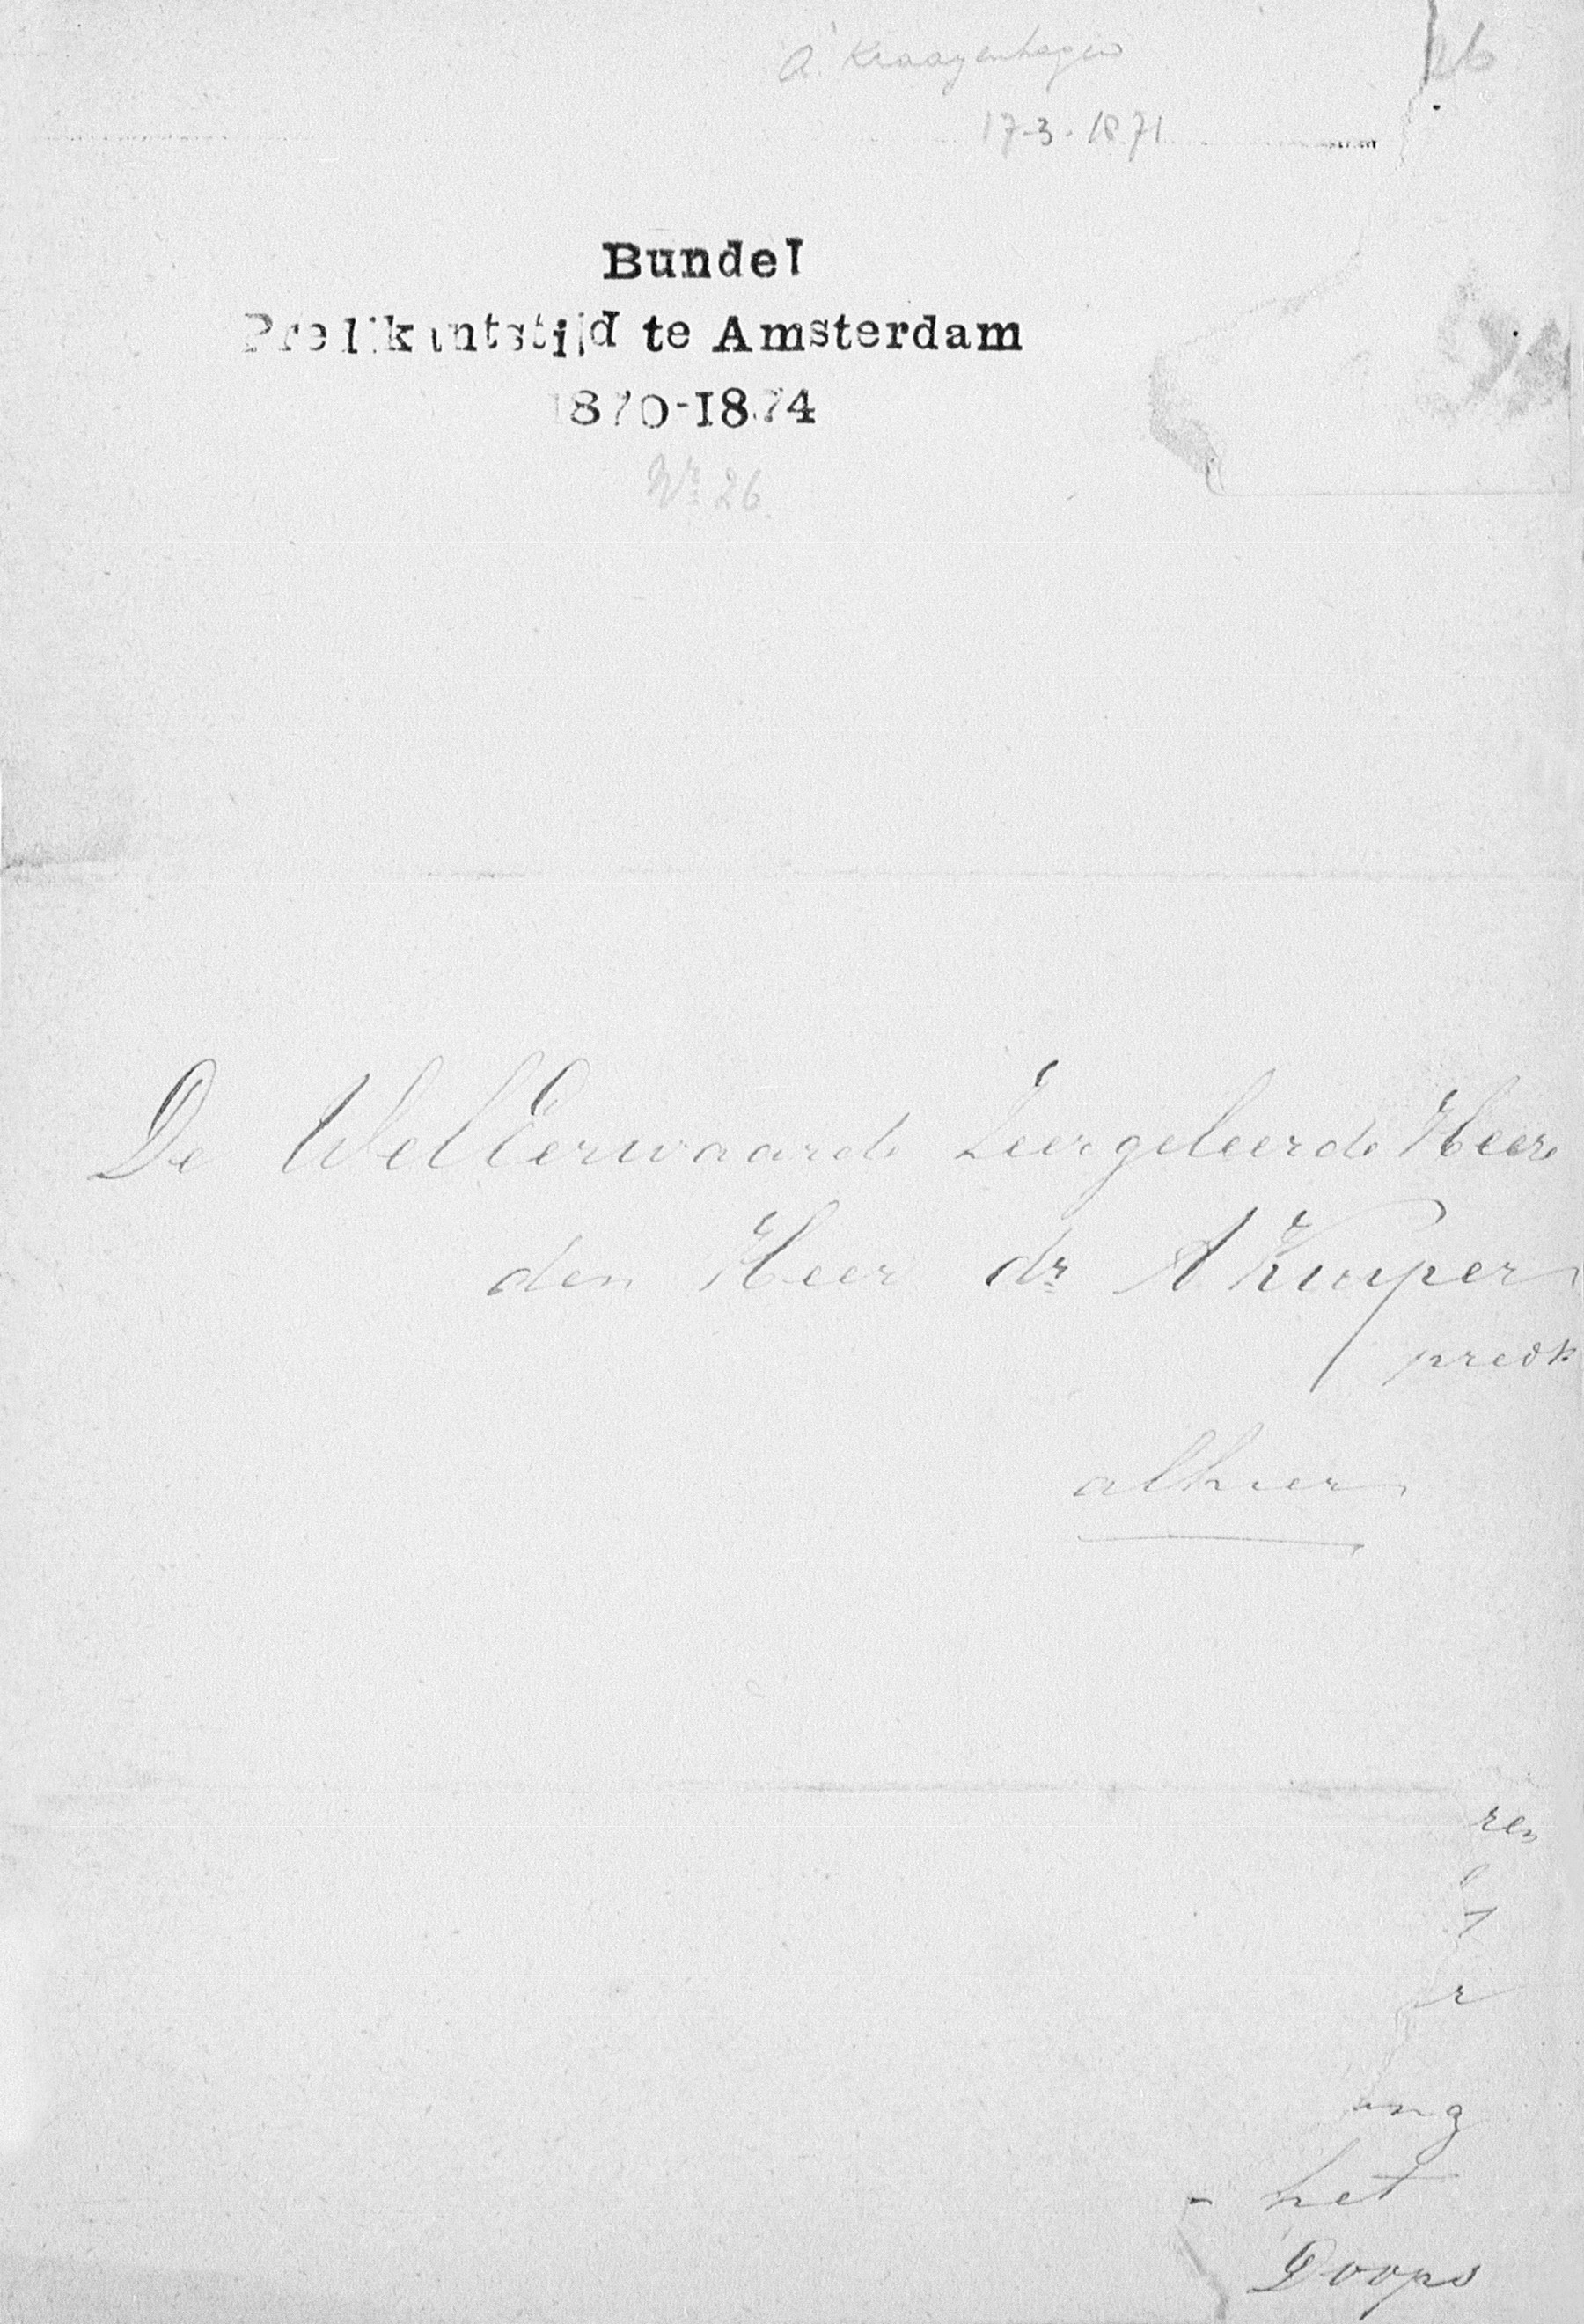 A. Kraayenhagen
26
17-3-1871
Bundel
Predikantstijd te Amsterdam
1870-1874
Nr 26.
De WelEerwaarde Zeergeleerde Heere
den Heer dr A Kuiper
predk
alhier
ren
r
ing
- het
Doops